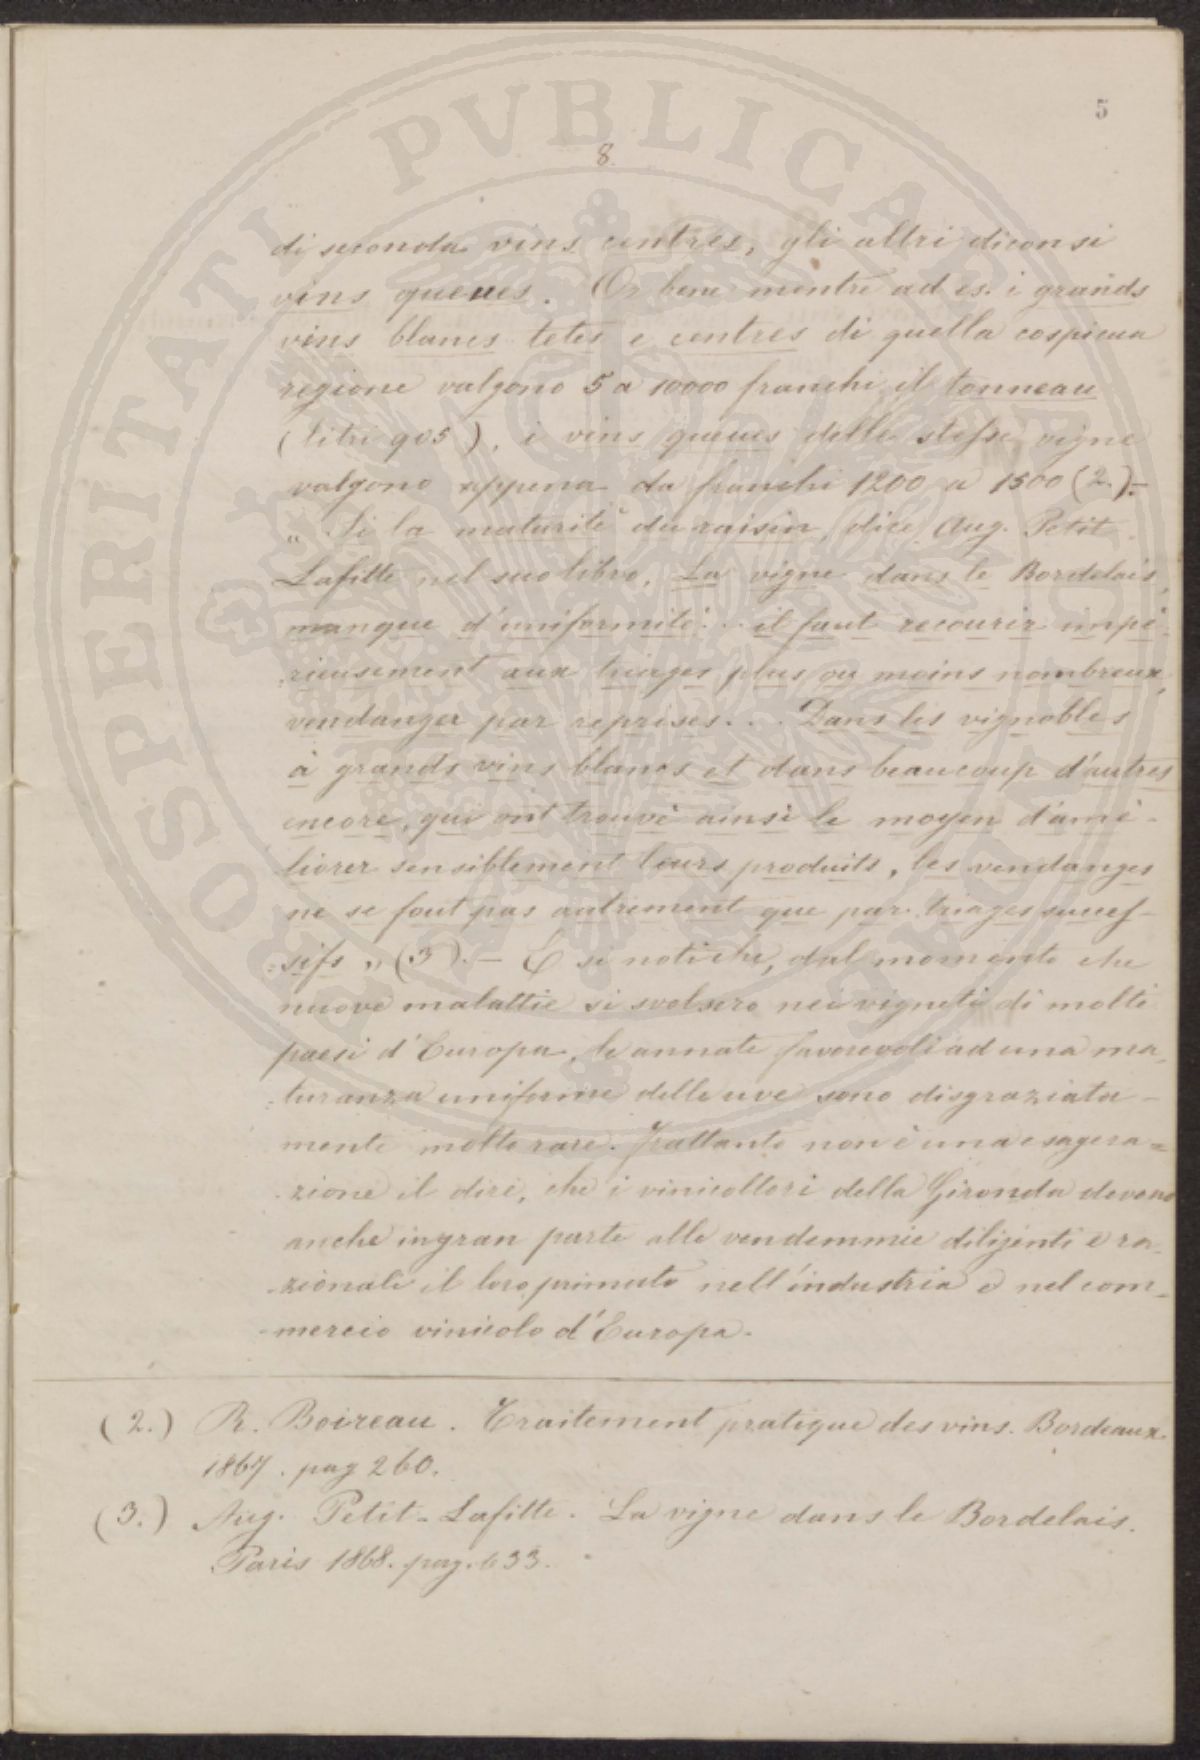 5
8.
di seconda vins centres, gli altri diconsi
vins queues. Or bene mentre ad es. i grands
vins blancs têtes e centres di quella cospicua
regione valgono 5 a 10000 franchi il tonneau
(litri 905), i vins queues delle stesse vigne
valgono appena da franchi 1200 a 1500 (2.).-
„ Si la maturité du raisin, dice Aug. Petit
Lafitte nel suo libro, La vigne dans le Bordelais,
manque d'uniformité... il faut recourir impé-
rieusement aux triages plus ou moins nombreux,
vendanger par reprises.... Dans les vignobles
à grands vins blancs et dans beaucoup d'autres
encore, qui ont trouvé ainsi le moyen d'amé-
liorer sensiblement leurs produits, les vendanges
ne se font pas autrement que par triages succes-
=sifs „ (3). - E si noti che, dal momento che
nuove malattie si svolsero nei vigneti di molti
paesi d'Europa, le annate favorevoli ad una ma=
=turanza uniforme delle uve sono disgraziata-
mente molto rare. Frattanto non è una esagera=
-zione il dire, che i vinicoltori della Gironda devono
anche in gran parte alle vendemmie diligenti e ra-
-zionali il loro primato nell'industria e nel com-
-mercio vinicolo d'Europa.
(2.) R. Boireau. Traitement pratique des vins. Bordeaux.
1867. pag 260.
(3.) Aug. Petit-Lafitte. La vigne dans le Bordelais.
Paris 1868. pag. 633.
PROSPERITATI PVBLICAE